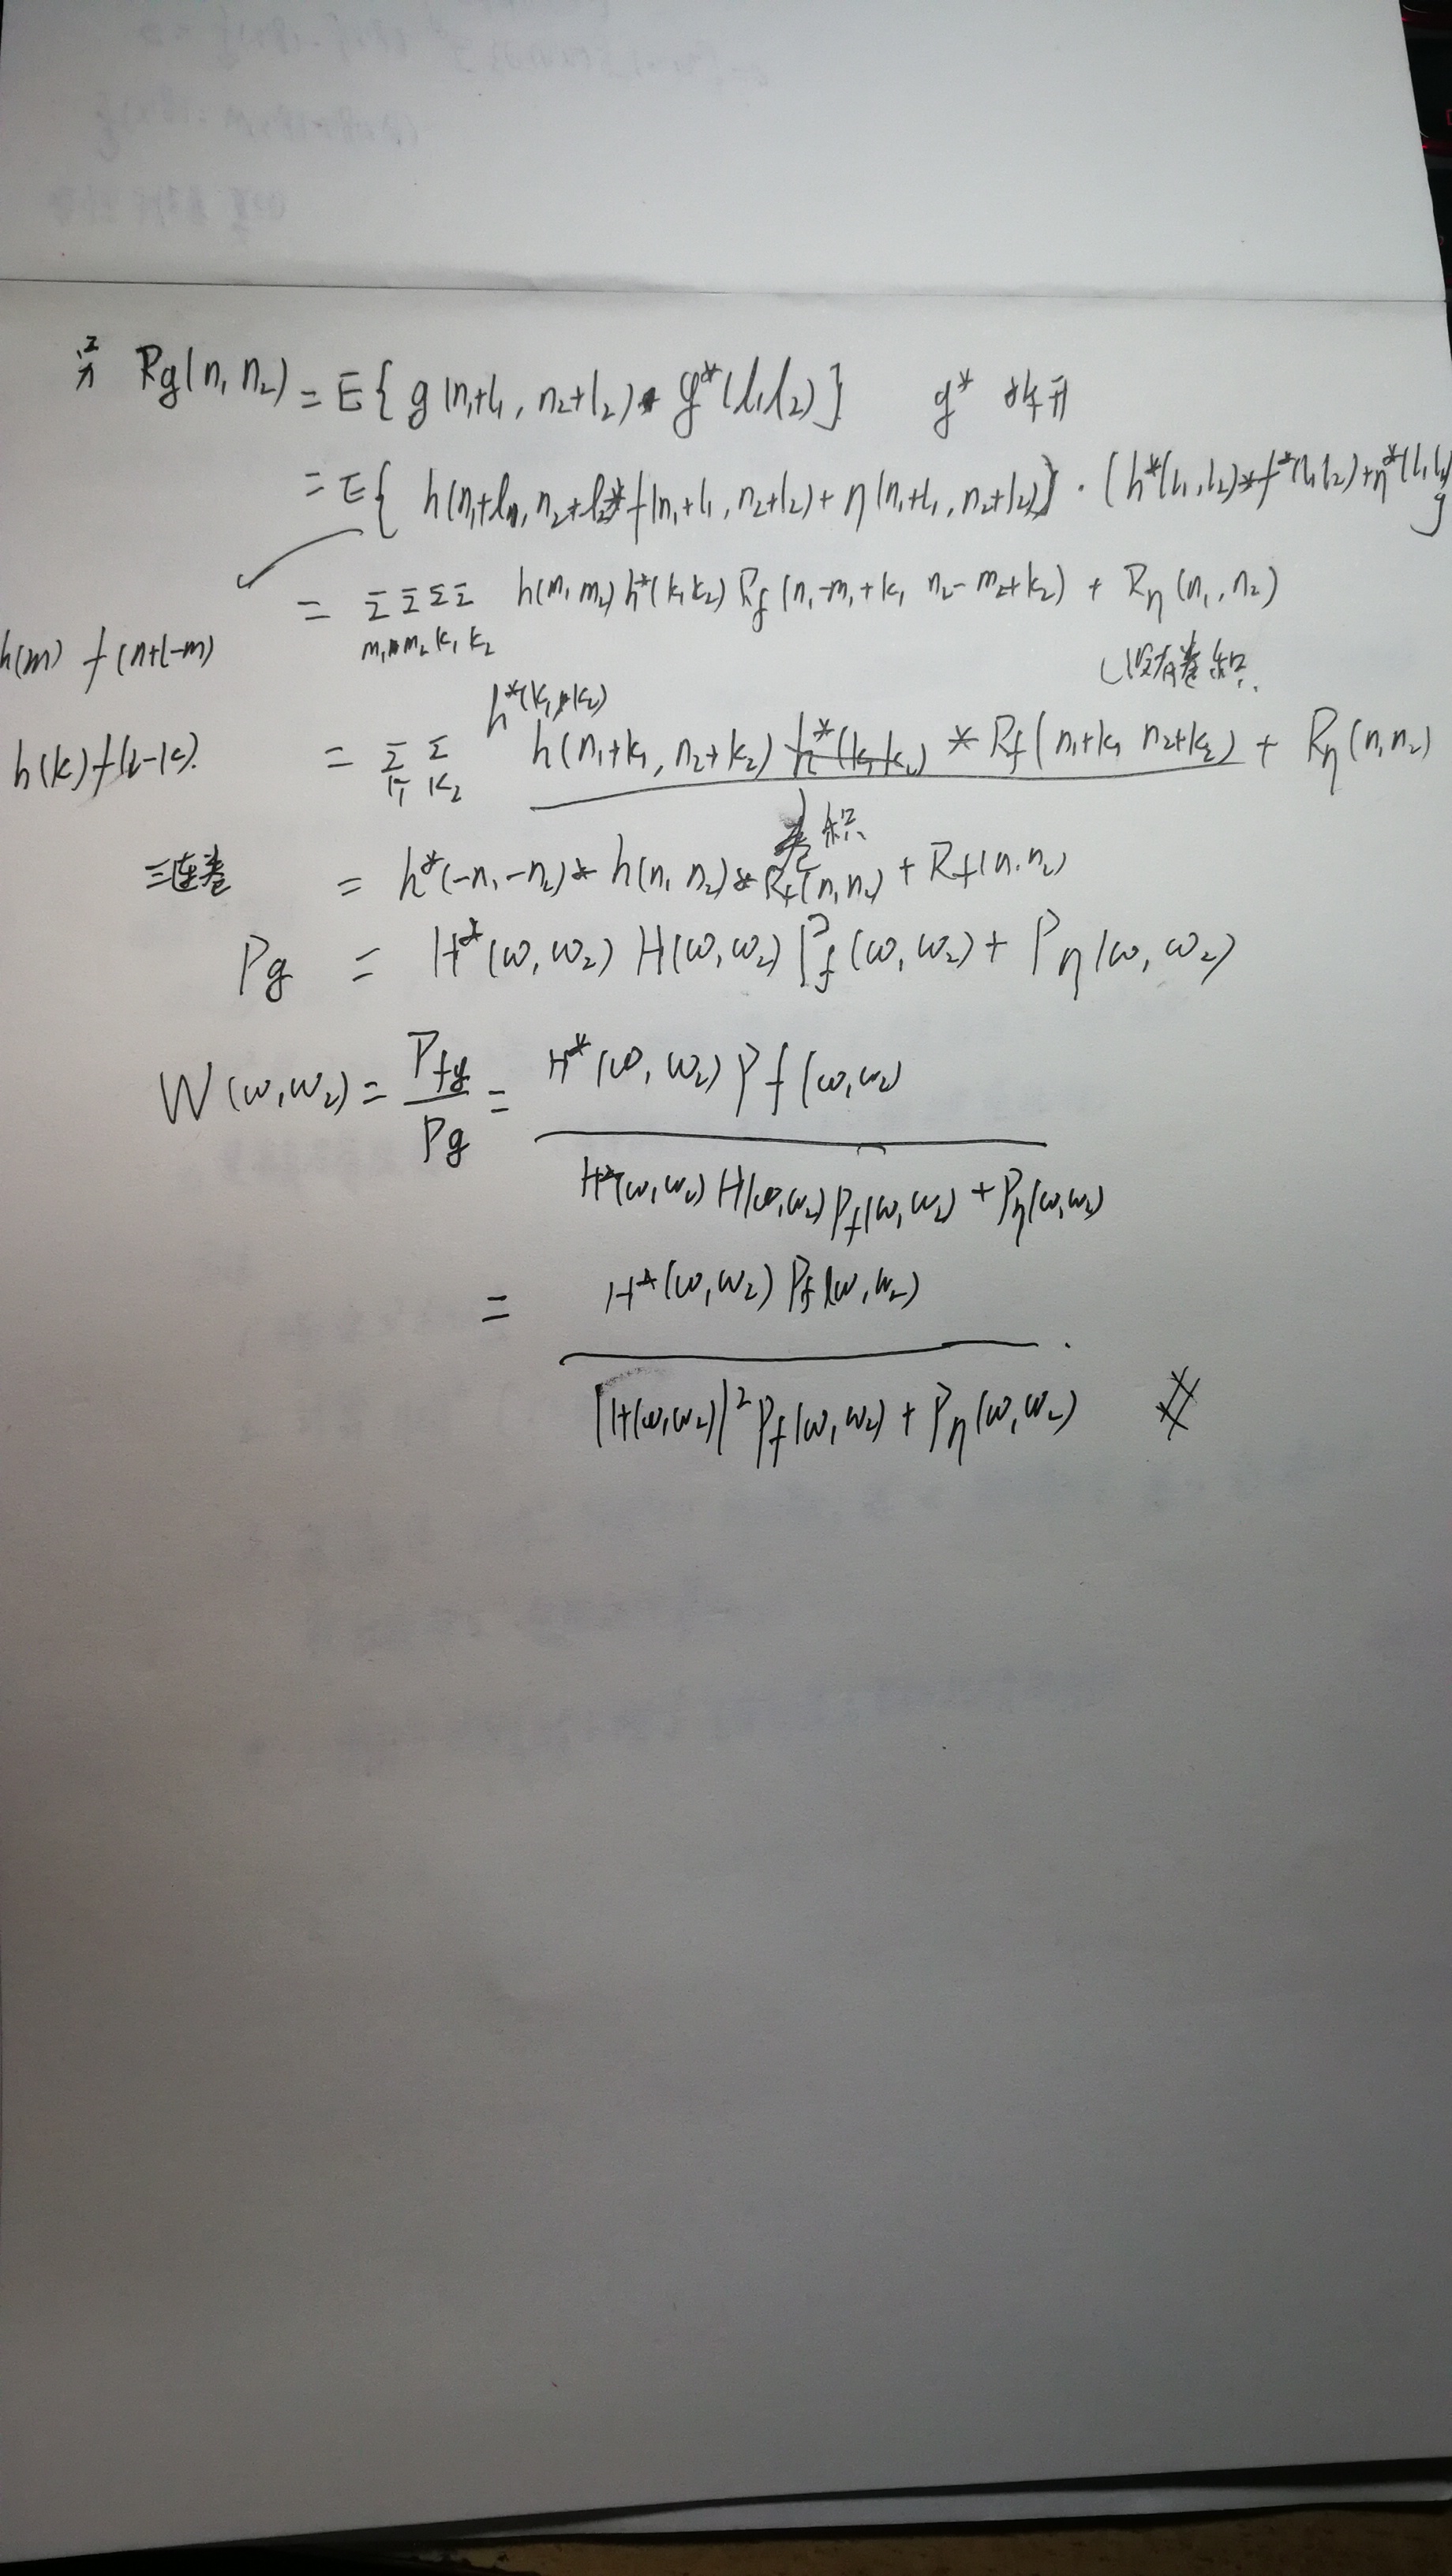 求 Rg(n₁ n₂) = E{ g(n₁+l₁, n₂+l₂) · g*(l₁ l₂) } g* 共轭
= E{ h(n₁+l₁, n₂+l₂)*f(n₁+l₁, n₂+l₂) + η(n₁+l₁, n₂+l₂)) · (h*(l₁, l₂)*f*(l₁ l₂)+η*(l₁ l₂) }
= Σ Σ Σ Σ h(m₁ m₂) h*(k₁ k₂) Rf (n₁-m₁+k₁ n₂-m₂+k₂) + Rη (n₁, n₂)
m₁ m₂ k₁ k₂
h(m) f(n+l-m)
(没有卷积.
h*(k₁ k₂)
h(k) f(l-k).
= Σ Σ h(n₁+k₁, n₂+k₂) * Rf (n₁+k₁ n₂+k₂) + Rη (n₁ n₂)
k₁ k₂
卷积
三连卷 = h*(-n₁ -n₂) * h(n₁ n₂) * Rf(n₁ n₂) + Rf(n₁ n₂)
Pg = H*(ω₁ ω₂) H(ω₁ ω₂) Pf (ω₁ ω₂) + Pη (ω₁ ω₂)
W(ω₁ ω₂) = Pfg / Pg = H*(ω₁ ω₂) Pf (ω₁ ω₂) / H*(ω₁ ω₂) H(ω₁ ω₂) Pf(ω₁ ω₂) + Pη(ω₁ ω₂)
= H*(ω₁ ω₂) Pf(ω₁ ω₂) / |H(ω₁ ω₂)|² Pf(ω₁ ω₂) + Pη(ω₁ ω₂) #